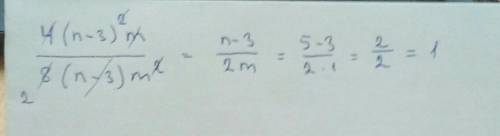 4(n-3)²m / 8(n-3)m² = n-3 / 2m = 5-3 / 2·1 = 2/2 = 1
2